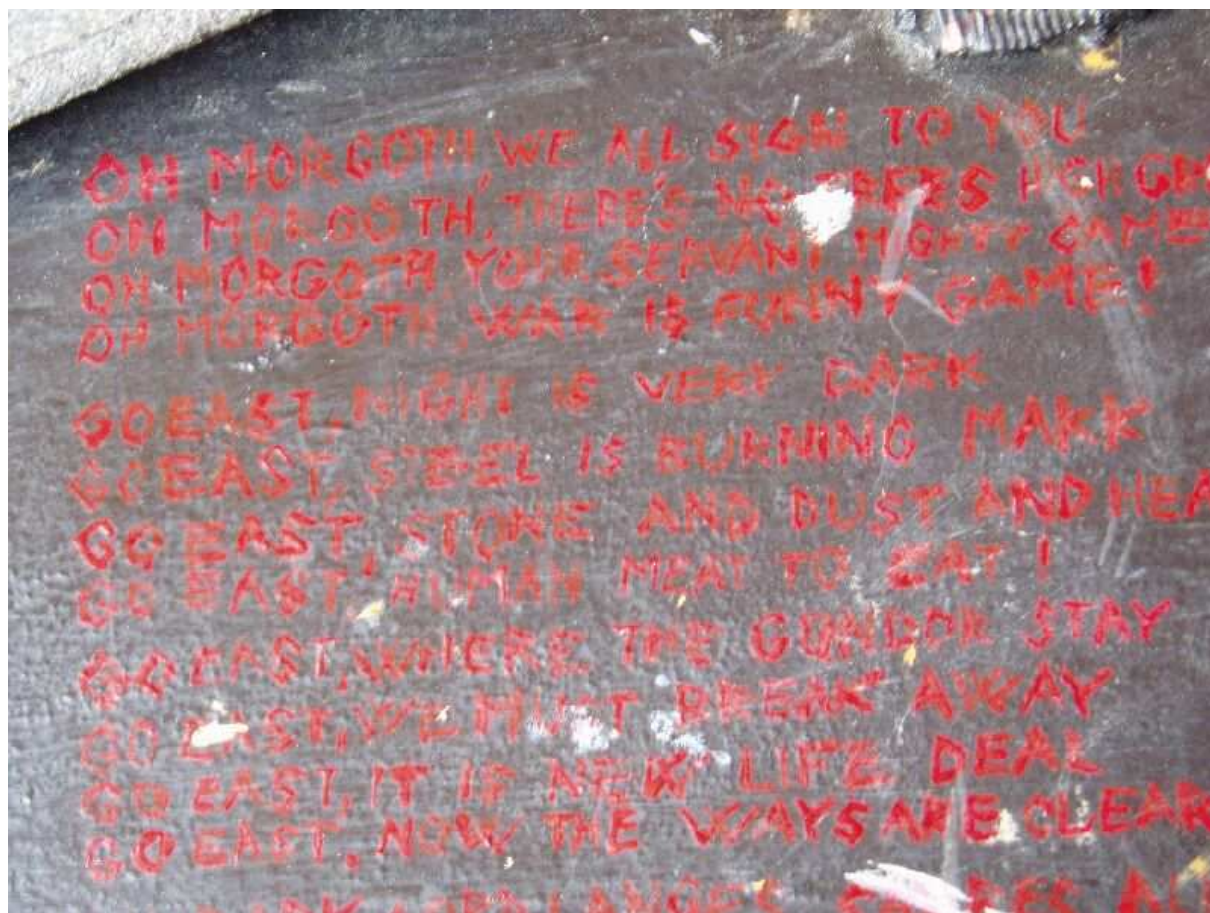 OH MORGOTH, WE ALL SIGN TO YOU
OH MORGOTH, THERE'S NO TREES HIGH
OH MORGOTH YOUR SERVANT MIGHTY CAME
OH MORGOTH, WAR IS FUNNY GAME!
GO EAST, NIGHT IS VERY DARK
GO EAST, STEEL IS BURNING MARK
GO EAST, STONE AND DUST AND HEA
GO EAST, HUMAN MEAT TO EAT!
GO EAST, WHERE THE GONDOR STAY
GO EAST, WE MUST BREAK AWAY
GO EAST, IT IF NEW LIFE DEAL
GO EAST, NOW THE WAYS ARE CLEAR